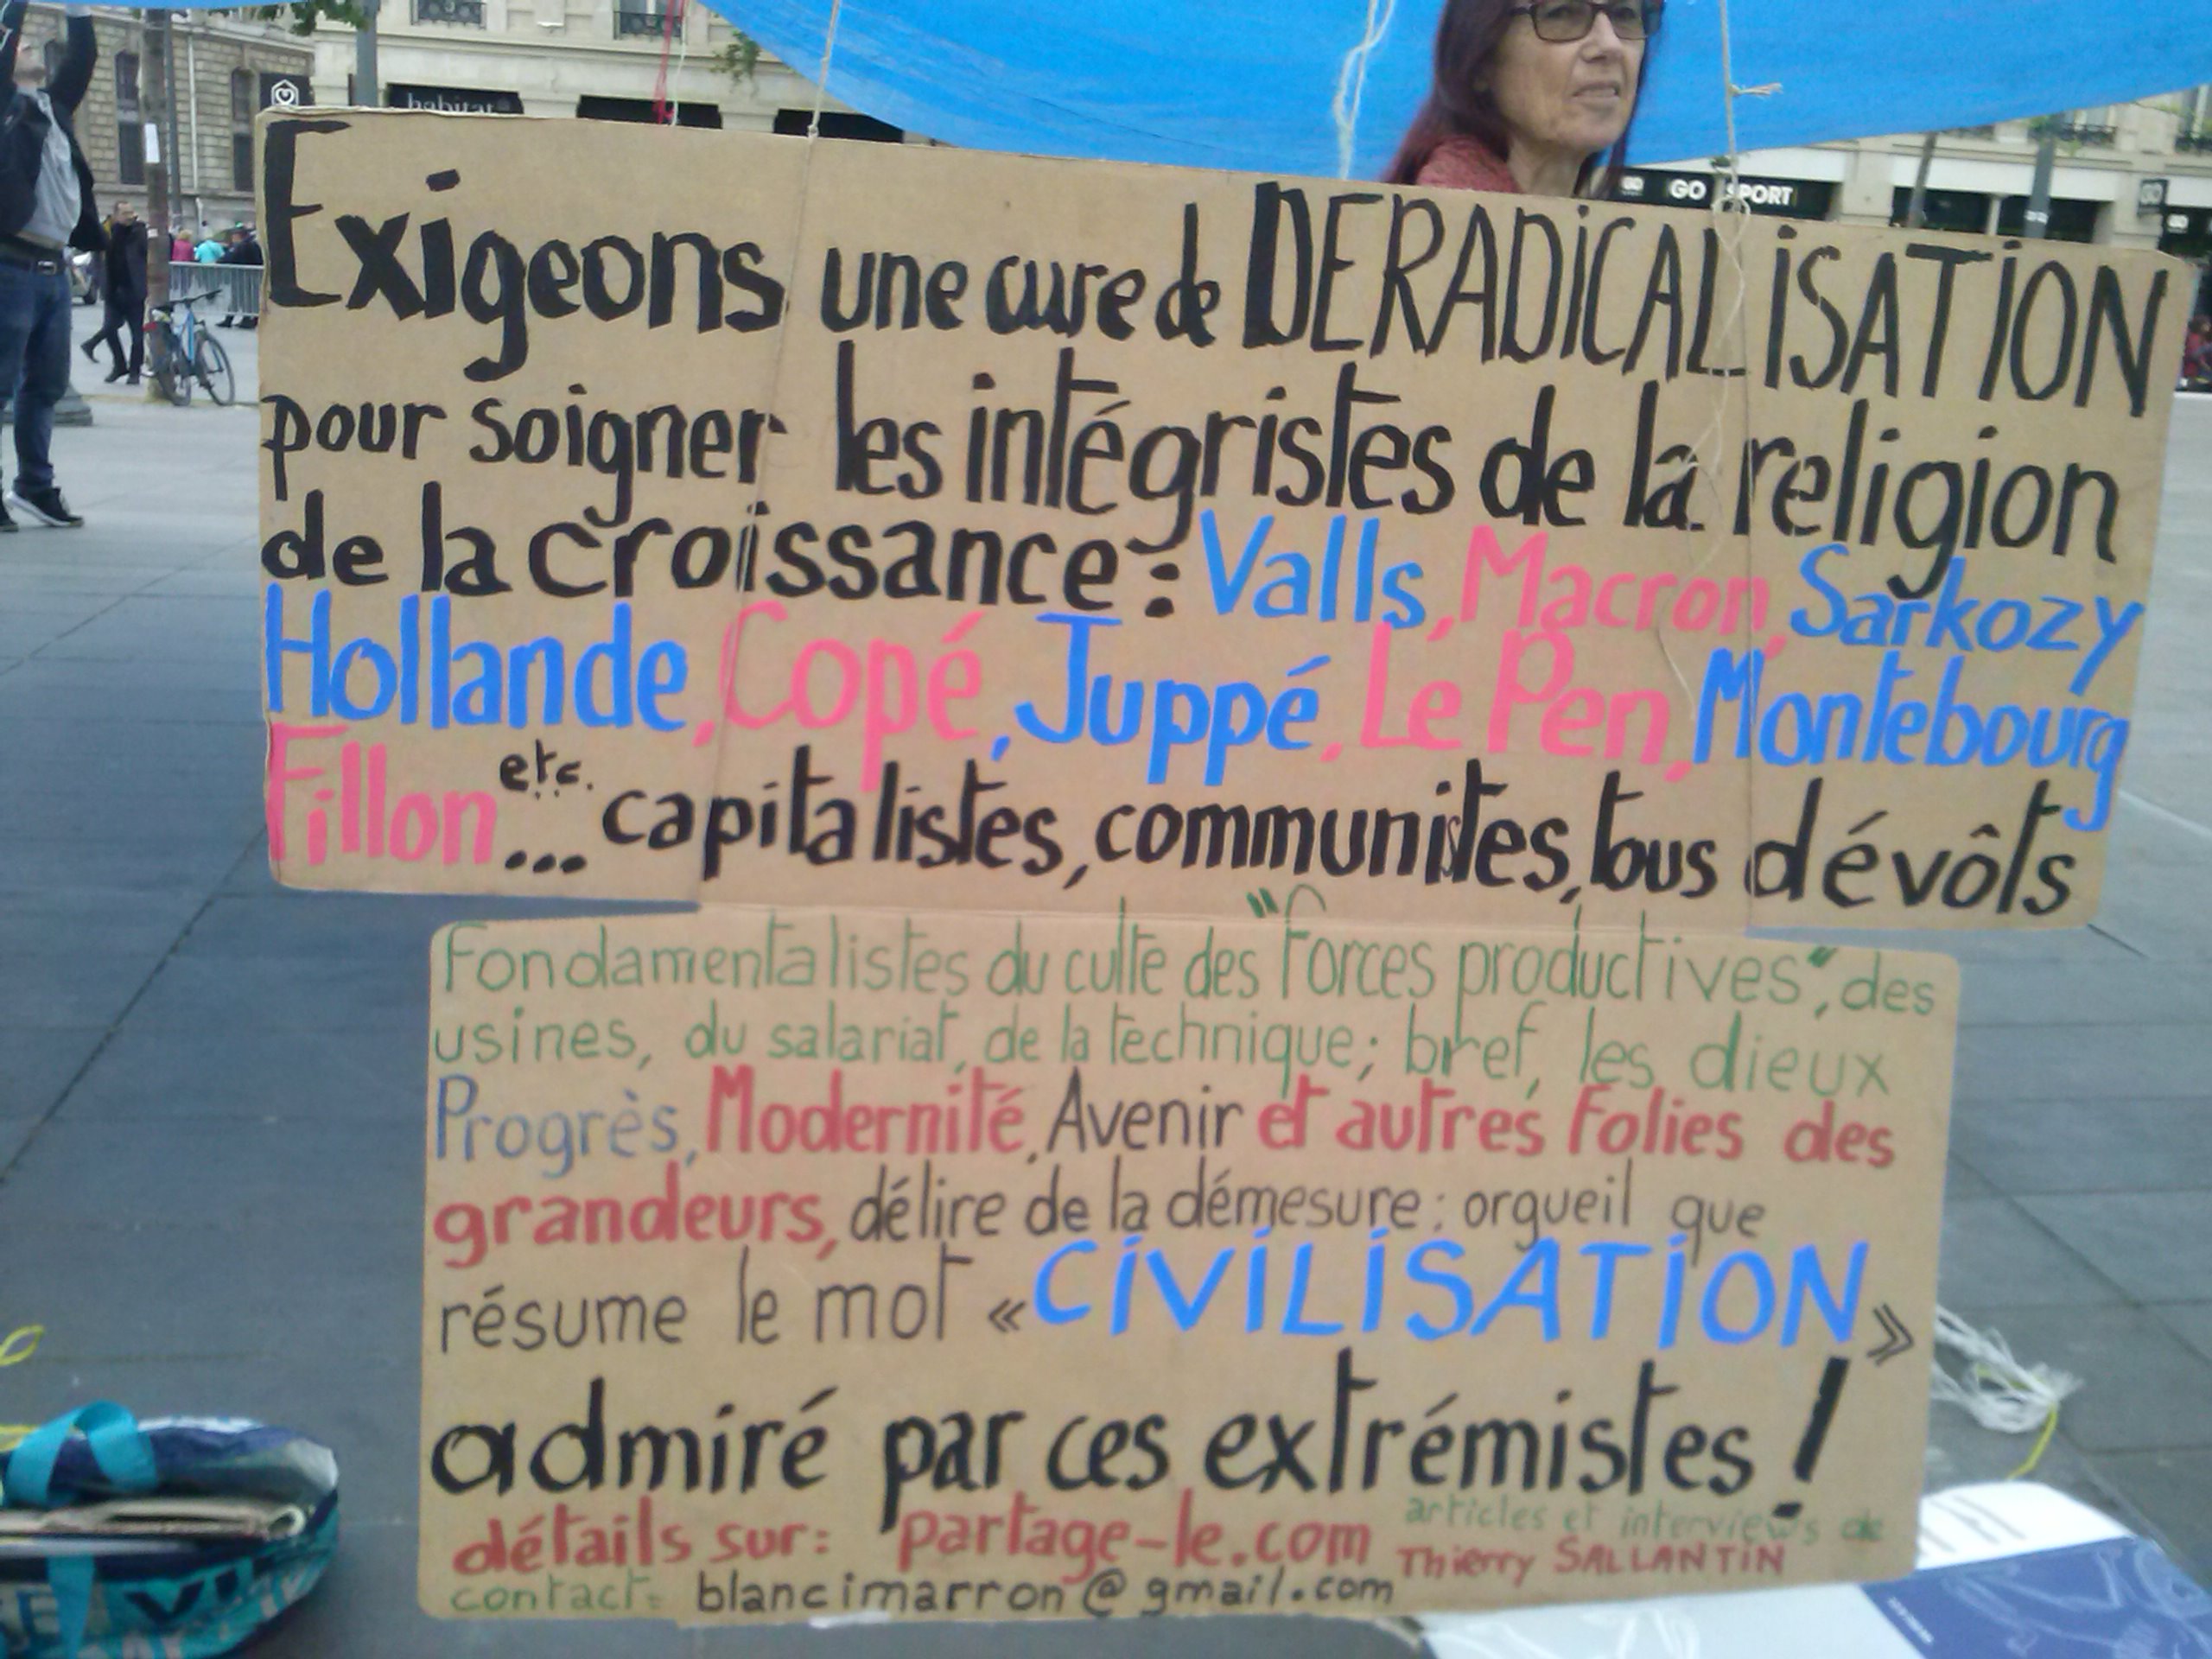 habitat
GO SPORT
Exigeons une cure de DERADiCALiSATiON
pour soigner les intégristes de la religion
de la croissance : Valls, Macron, Sarkozy
Hollande, Copé, Juppé, Le Pen, Montebourg
Fillon etc... capitalistes, communistes, tous dévôts
Fondamentalistes du culte des "forces productives", des
usines, du salariat, de la technique; bref, les dieux
Progrès, Modernité, Avenir et autres Folies des
grandeurs, délire de la démesure : orgueil que
résume le mot «CiViLiSATiON»
admiré par ces extrémistes !
détails sur: partage-le.com articles et interviews de
Thierry SALLANTiN
contact: blancimarron@gmail.com